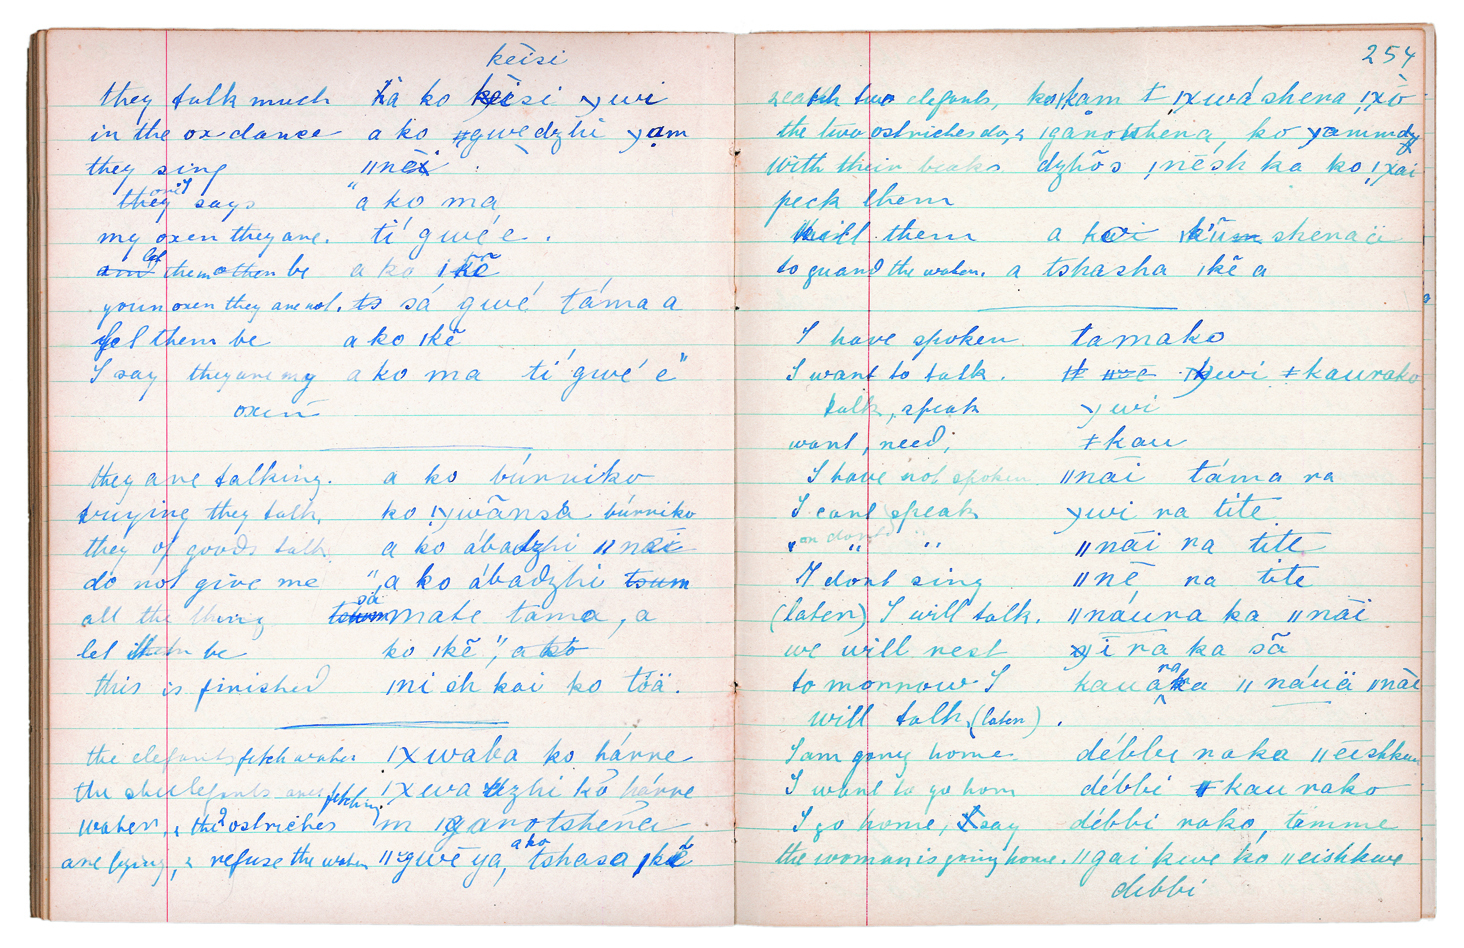 kēisi
they talk much hà ko kēisi ɣwi
in the ox dance a ko ǂgwe dzhi ɣam
they sing ǁnēi
they says "a ko ma
my oxen they are. tí gwé e.
let them be a ko ǀkē
your oxen they are not. sá gwé táma a
let them be a ko ǀkē
I say they are my a ko ma tí gwé é"
oxen
they are talking. a ko búrriko
they talk, ko búrriko
they of goods talk a ko ábadzhi ǁnāi
do not give me ", a ko ábadzhi tsum
all the thing sā mate tama, a
let them be ko ǀkē", a ko
this is finished ǀni sh kai ko tóä.
the elefants fetch water ǀxwaba ko hárre
the she elefants are fetching ǀxwa dzhi ko hárre
water, & the 2 ostriches m ǀgarotshēra
ako
are lying, & refuse the water ǁgwē ya, tshasa ǀkē
254
each two elefants, ǀxwá shena ǀxō
the two ostriches do, & ǀgarotshena, ko ɣammdzhi
with their beaks dzhōs ǀnēsh ka ko ǀxāi
peck them
kill them a koi shenaä
to guard the water. a tshasha ǀkē a
I have spoken tamako
I want to talk. ɣwi ǂkaurako
talk, speak ɣwi
want, need, ǂkau
I have not spoken ǁnāi táma ra
I cant speak ɣwi ra tite
" on dont " " ǁnāi ra tite
I dont sing ǁnē ra tite
(later) I will talk. ǁnáura ka ǁnāi
we will rest ɣī ra ka sā
to morrow I kauära ka ǁnáuä ǁnāi
will talk (later).
I am going home. débbe raka ǁēishkwe
I want to go home débbi ǂkau rako
I go home, I say débbi rako, tamme
the woman is going home. ǁgai kwe ko ǁeishkwe
débbi